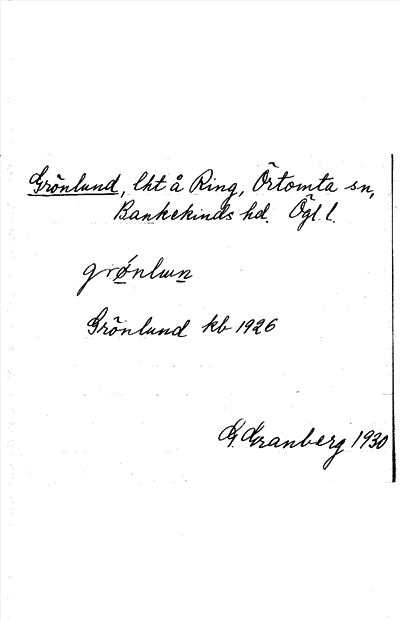 Grönlund, lht å Ring, Örtomta sn,
Bankekinds hd. Ögl. l.
grø̱nlun̲
Grönlund kb 1926
G. Granberg 1930